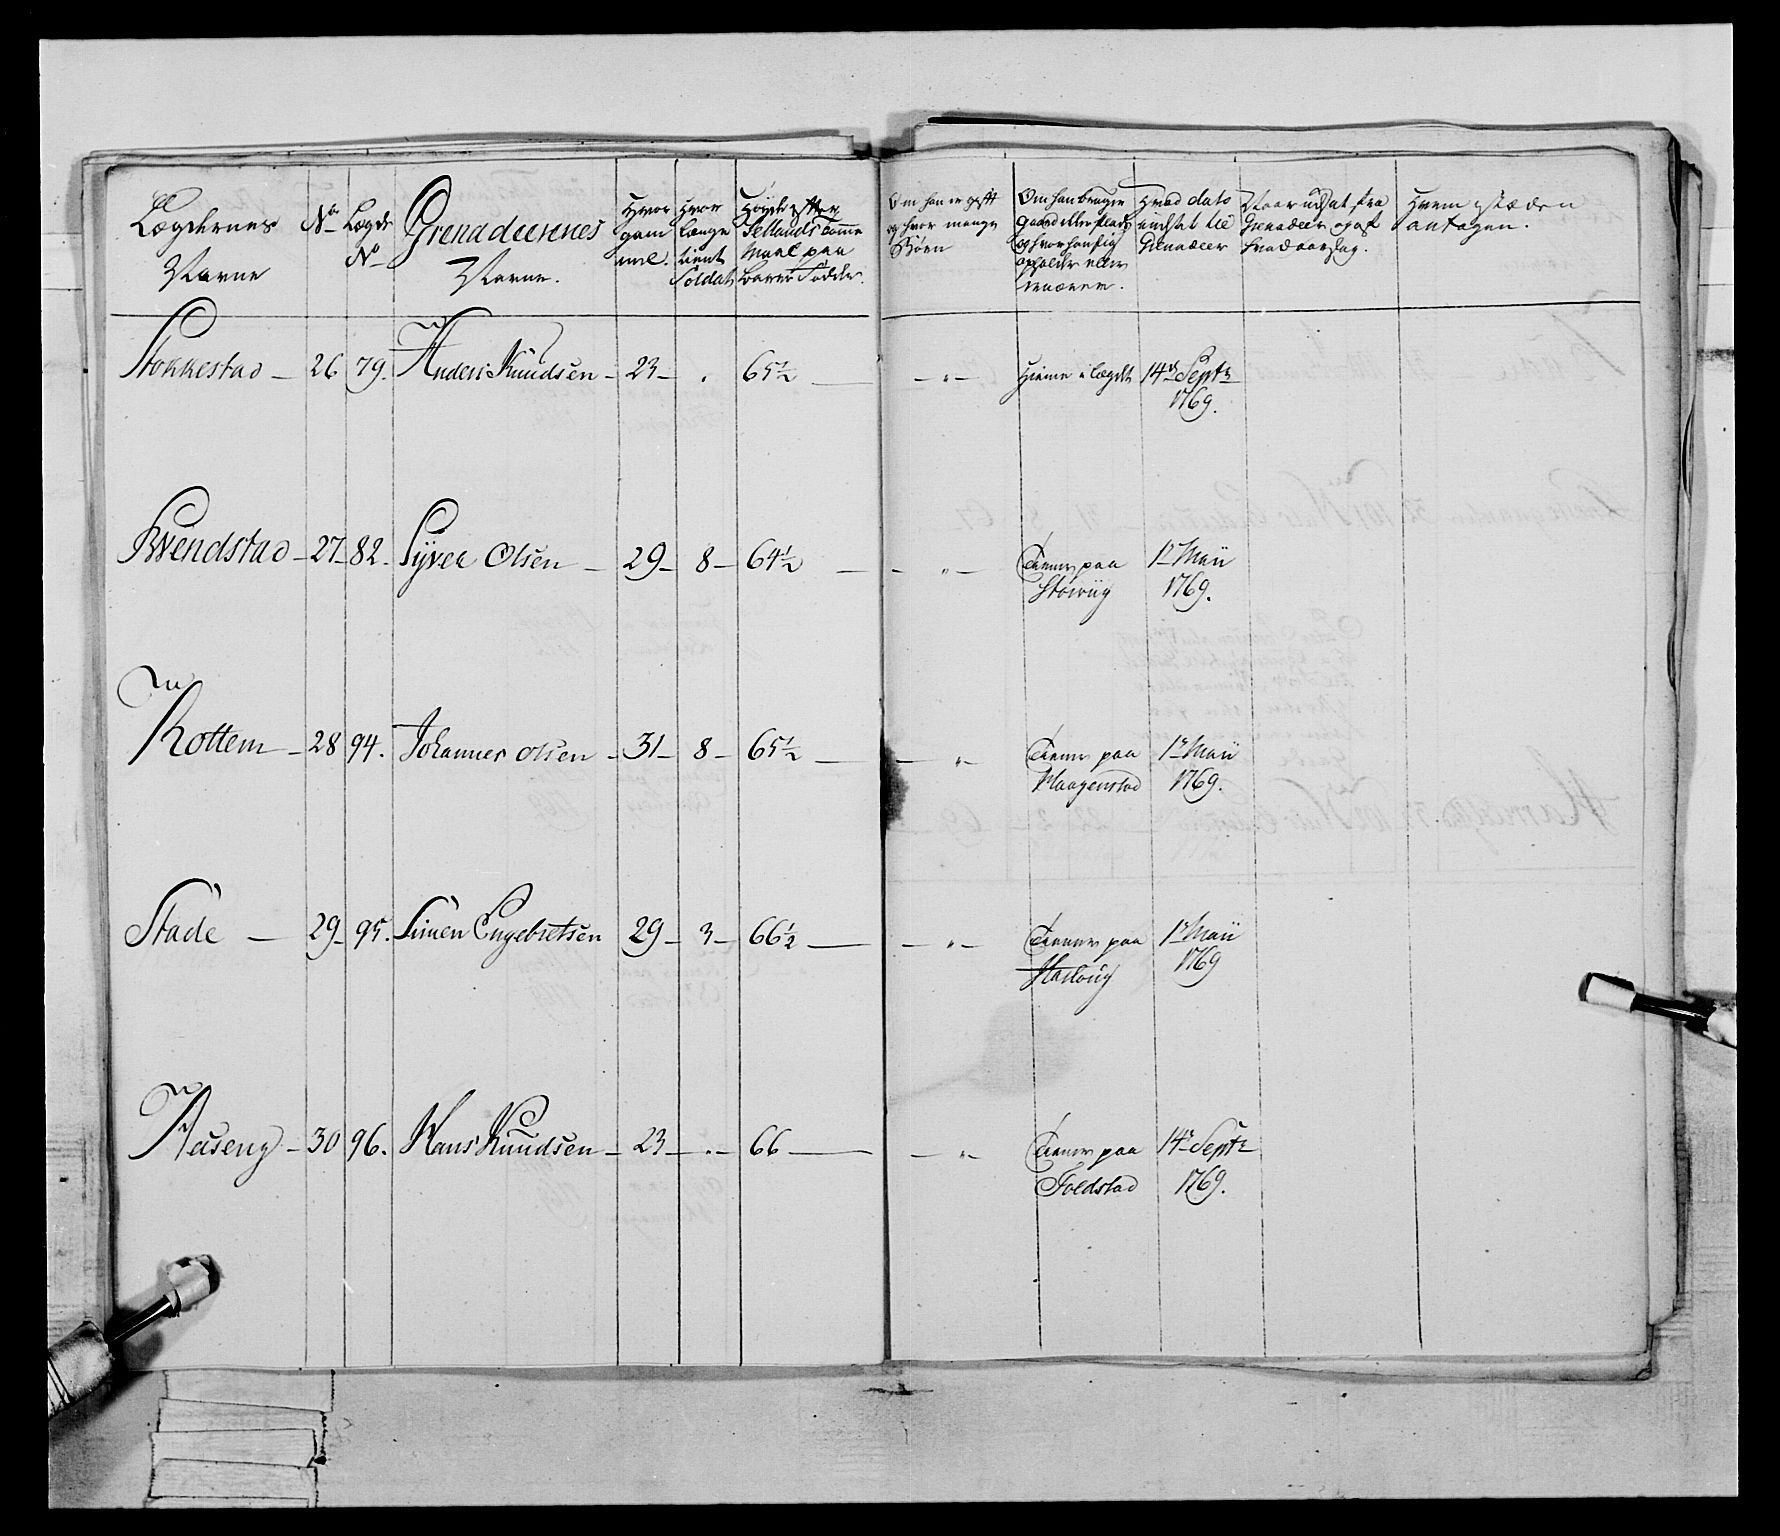 Lægdernes Navne
No
Lægds No
Grenadeernes Navne.
Hvor gammel.
Hvor længe tient Soldat
Høyde efter Sellands Tomme Maal paa bare Fødder.
Om han er gift og hvor mange Børn
Om han bruger gaard eller Plads og hvor han sig opholder eller ernærer.
Hvad dato indsat til Grenadeer
Naar udsat fra Grenadeer og af hvad aarsag.
Hvem i stæden antagen.
Stokkestad – 26 79. Anders Knudsen – 23 – . 65½ — – " – Hieme i Lægdet 14de Septr
1769.
Svendstad – 27 – 82. Syver Olsen – 29 – 8 – 64½ — – " – Tiener paa 1te Maii
1769.
Kottem – 28 94. Johannes Olsen – 31 – 8 – 65½ — – " – Tiener paa 1te Maii
Haagenstad 1769.
Stade — 29 – 95. Simen Engebretsen 29 – 3 – 66½ — – " – Tiener paa 1te Maii
1769
Aaseng – 30 96. Hans Knudsen – 23 – . – 66 — – " – Tiener paa 14de Septr
Foldstad 1769.